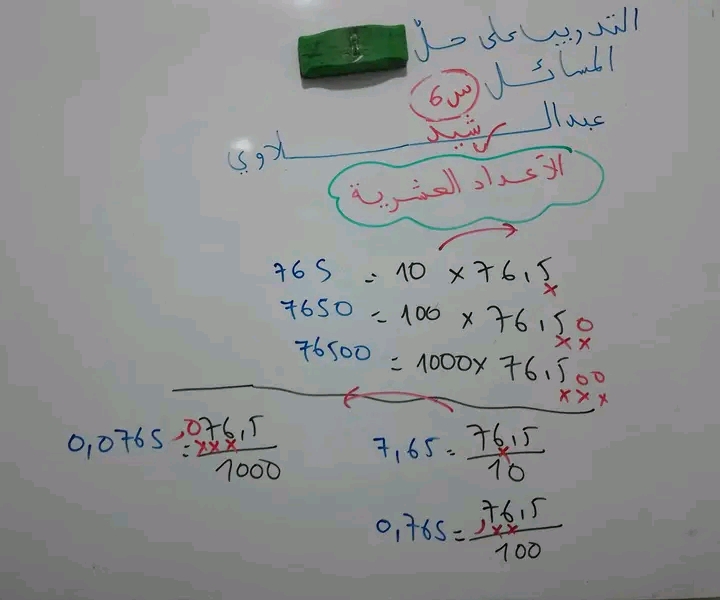 التدريب على حلّ
المسائل س6
عبدالرشيد
لاوي
الأعداد العشرية
765 = 10 × 76,5
7650 = 100 × 76,50
76500 = 1000 × 76,500
7,65 = 76,5 / 10
0,0765 = ,076,5 / 1000
0,765 = ,76,5 / 100